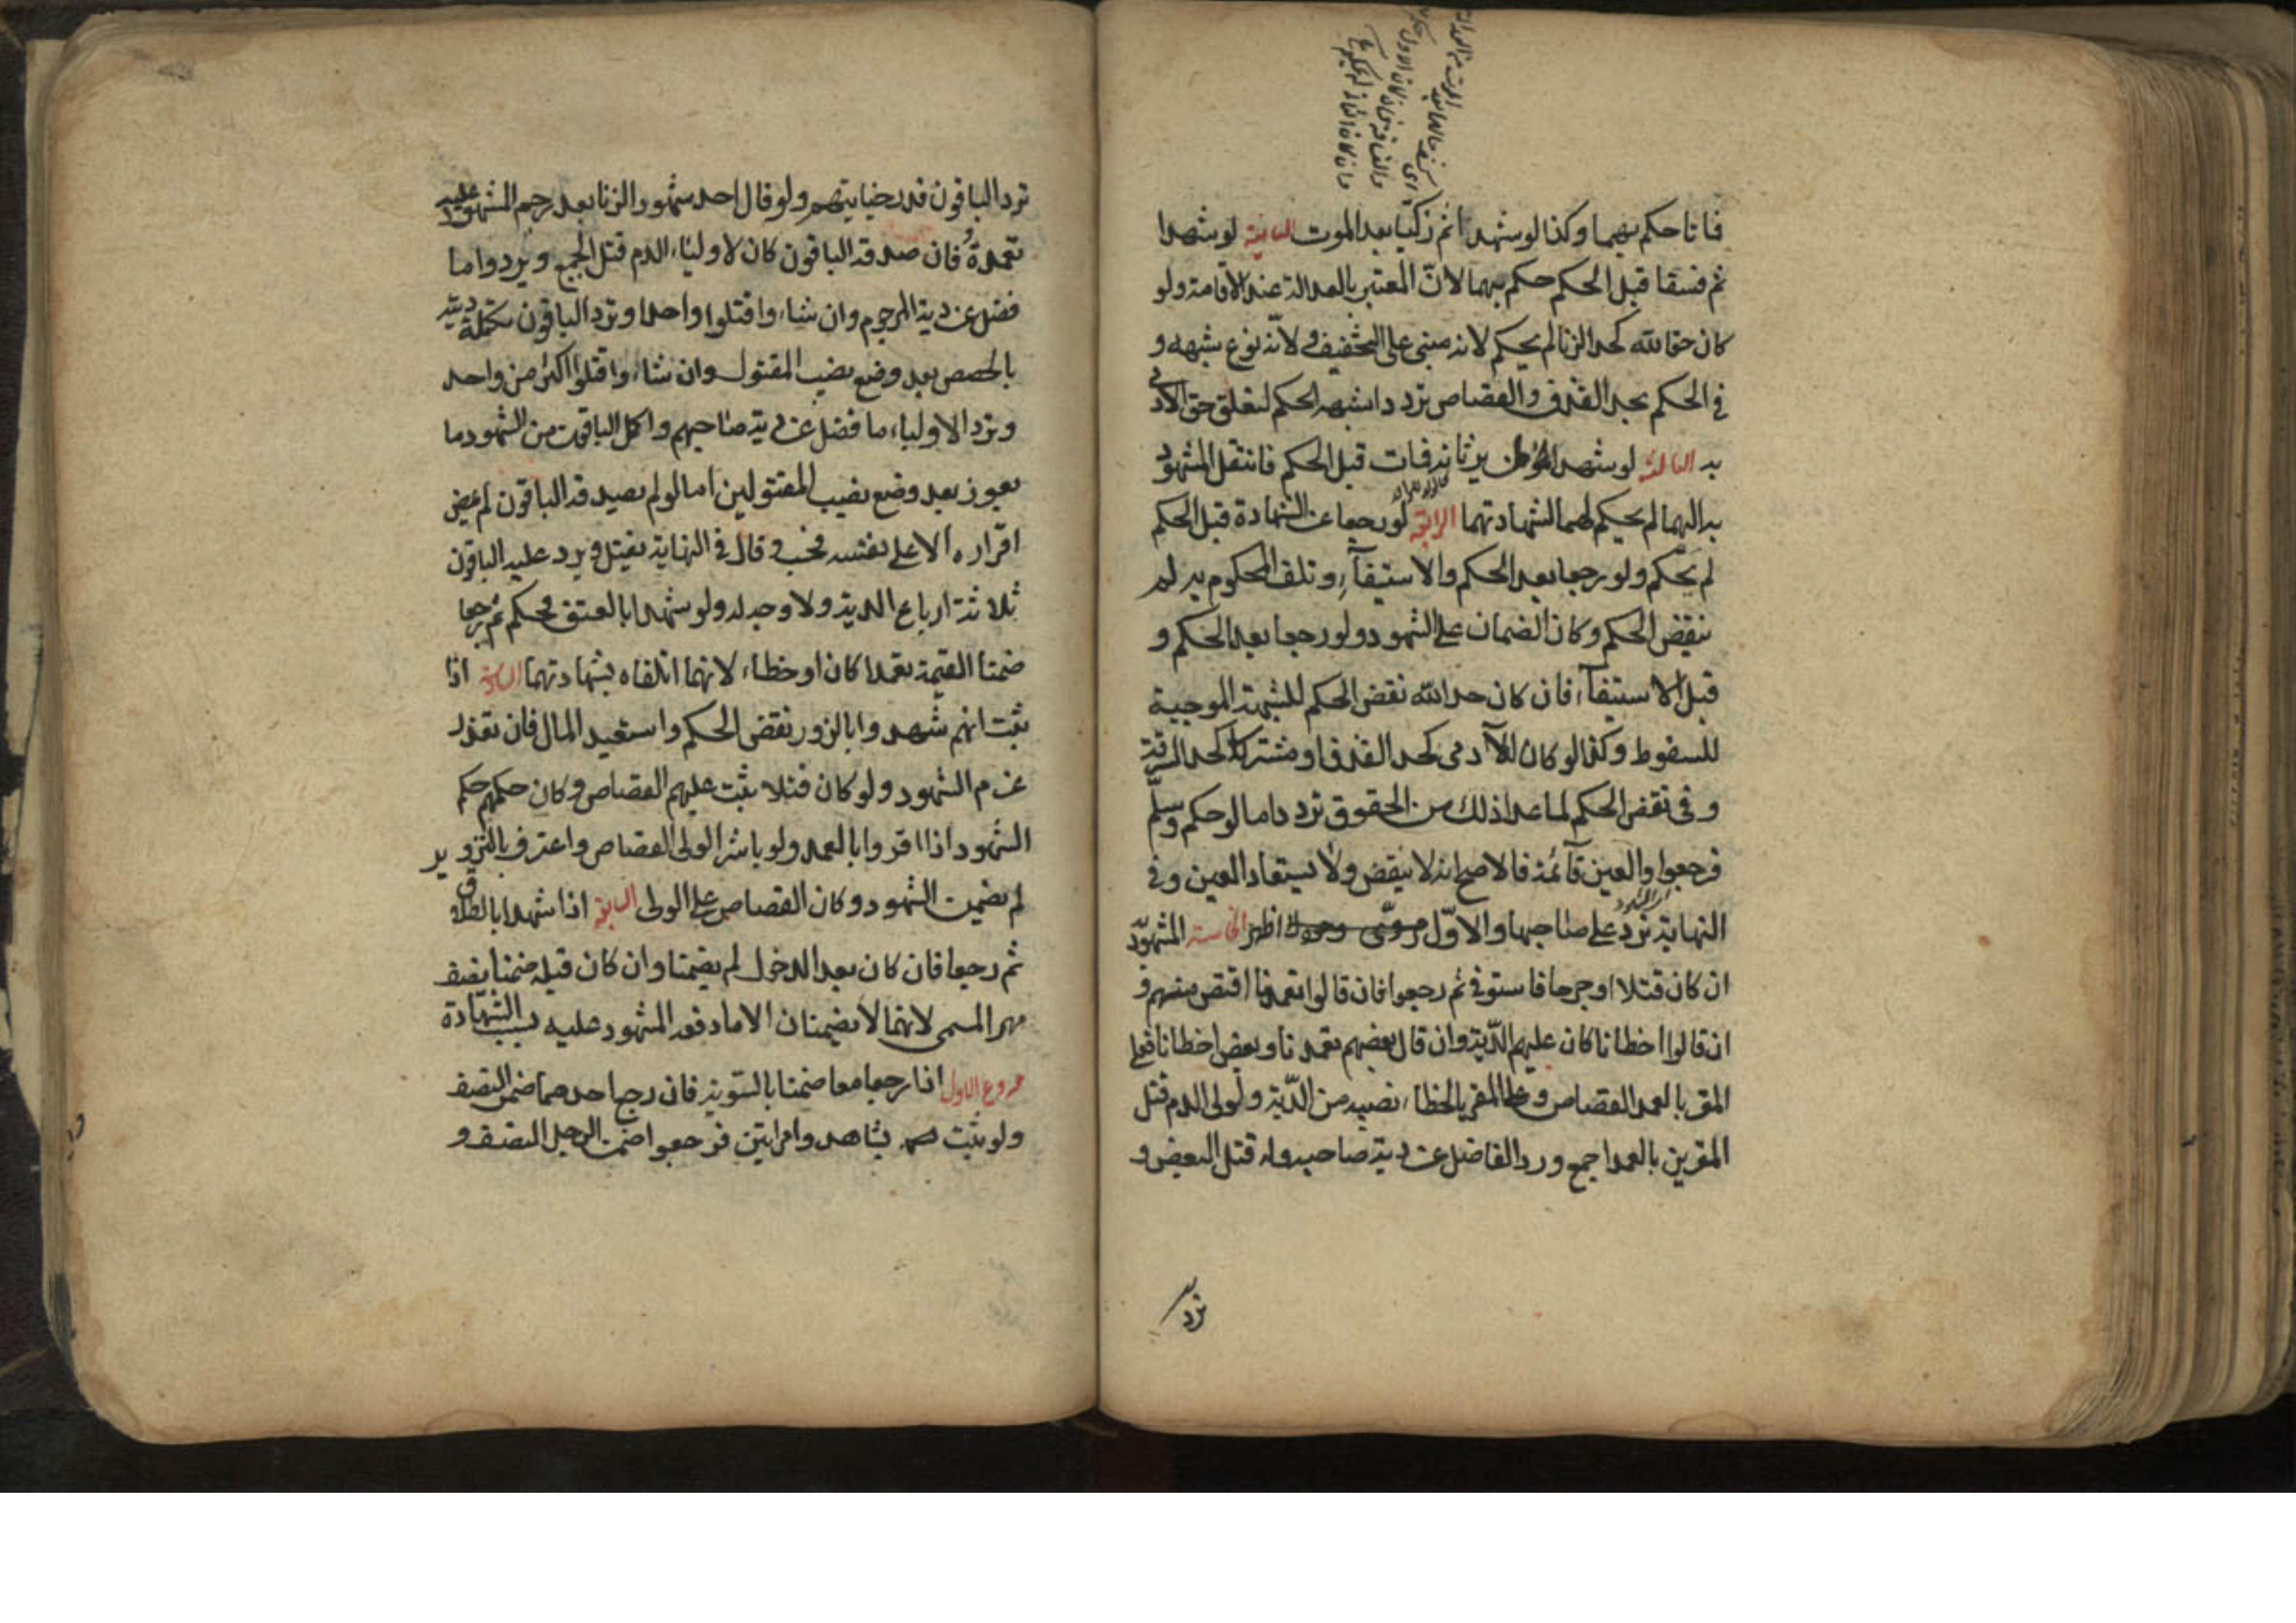 فماتا حكم بهما وكذا لو شهدا ثم زكيا بعد الموت الثانية لو شهدا
ثم فسقا قبل الحكم حكم بهما لانّ المعتبر بالعدالة عند الاقامة ولو
كان حقا لله كحد الزنا لم يحكم لانه مبنى على التخفيف ولانّه نوع شبهه و
فى الحكم بحد القذف والقصاص تردد اشبهه الحكم لتعلق حق الآدمى
به الثالثة لو شهدا لمن يرثانه فمات قبل الحكم فانتقل المشهود
به اليهما لم يحكم لهما لشهادتهما الرابعة لو رجعا عن الشهادة قبل الحكم
لم يحكم ولو رجعا بعد الحكم والاستيفآء وتلف المحكوم به لم
ينقض الحكم وكان الضمان على الشهود ولو رجعا بعد الحكم و
قبل الاستيفآء فان كان حد الله نقض الحكم للشبهة الموجبة
للسقوط وكذا لو كان للآدمى كحد القذف او مشتركا كحد السرقة
وفى نقض الحكم لما عدا ذلك من الحقوق تردد اما لو حكم وسلّم
فرجعوا والعين قآئمة فالاصح انه لا ينقض ولا يستعاد العين وفى
النهاية تردّ على صاحبها والاوّل اظهر الخامسة المشهود به
ان كان قتلا او جرحا فاستوفى ثم رجعوا فان قالوا تعمدنا اقتص منهم و
ان قالوا اخطانا كان عليهم الدّية وان قال بعضهم تعمدنا وبعض اخطانا فعلى
المقر بالعمد القصاص وعلى المقر بالخطاء نصيبه من الدّية ولولى الدم قتل
المقرين بالعمد اجمع ورد الفاضل عن دية صاحبه وله قتل البعض و
ترد
ترد الباقون قدر جنايتهم ولو قال احد شهود الزنا بعد رجم المشهود عليه
تعمدت فان صدقه الباقون كان لاولياء الدم قتل الجميع ويردوا ما
فضل عن دية المرجوم وان شاءوا قتلوا واحدا وترد الباقون تكملة ديته
بالحصص بعد وضع نصيب المقتول وان شاءوا قتلوا اكثر من واحد
وترد الاولياء ما فضل عن دية صاحبهم واكمل الباقون من الشهود ما
يعوز بعد وضع نصيب المقتولين اما لو لم يصدقه الباقون لم يمض
اقراره الا على نفسه فحسب وقال فى النهاية يقتل ويرد عليه الباقون
ثلاثة ارباع الدية ولا وجه له ولو شهدا بالعتق فحكم ثم رجعا
ضمنا القيمة تعمدا كان او خطاء لانهما اتلفاه بشهادتهما السادسة اذا
ثبت انهم شهدوا بالزور نقض الحكم واستعيد المال فان تعذر
غرم الشهود ولو كان قتلا ثبت عليهم القصاص وكان حكمهم حكم
الشهود اذا اقروا بالعمد ولو باشر الولى القصاص واعترف بالتزوير
لم يضمن الشهود وكان القصاص على الولى السابعة اذا شهدا بالطلاق
ثم رجعا فان كان بعد الدخول لم يضمنا وان كان قبله ضمنا نصف
مهر المسمى لانهما لا يضمنان الا ما دفعه المشهود عليه بسبب الشهادة
فروع الاول اذا رجعا معا ضمنا بالسّوية فان رجع احدهما ضمن النصف
ولو ثبت بشاهد وامراتين فرجعوا ضمن الرجل النصف و